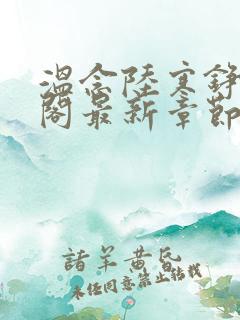 温念陆寒铮
阁最新章节
諸羊黄昏
未经同意禁止转载